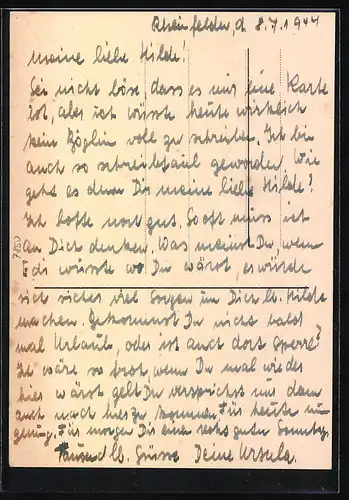 Rheinfelden, d. 8.7.1944
Meine liebe Hilde!
Sei nicht böse dass es nur eine Karte
ist, aber ich wüsste heute wirklich
kein voll zu schreiben. Ich bin
auch so schreibfaul geworden. Wie
geht es denn Dir meine liebe Hilde?
Ich hoffe nur gut. So oft muss ich
an Dich denken. Was meinst Du, wenn
ich wüsste wo Du wärst, ich würde
mich sicher viel Sorgen um Dich lb. Hilde
machen. Bekommst Du nicht bald
mal Urlaub oder ist auch dort Sperre?
Es wäre so wenn Du mal wieder
hier wärst gelt Du versprichst uns dann
auch nach hier zu kommen. Für heute nun
genug. Für morgen Dir einen recht guten Sonntag.
Tausend lb. Grüsse Deine Ursula.